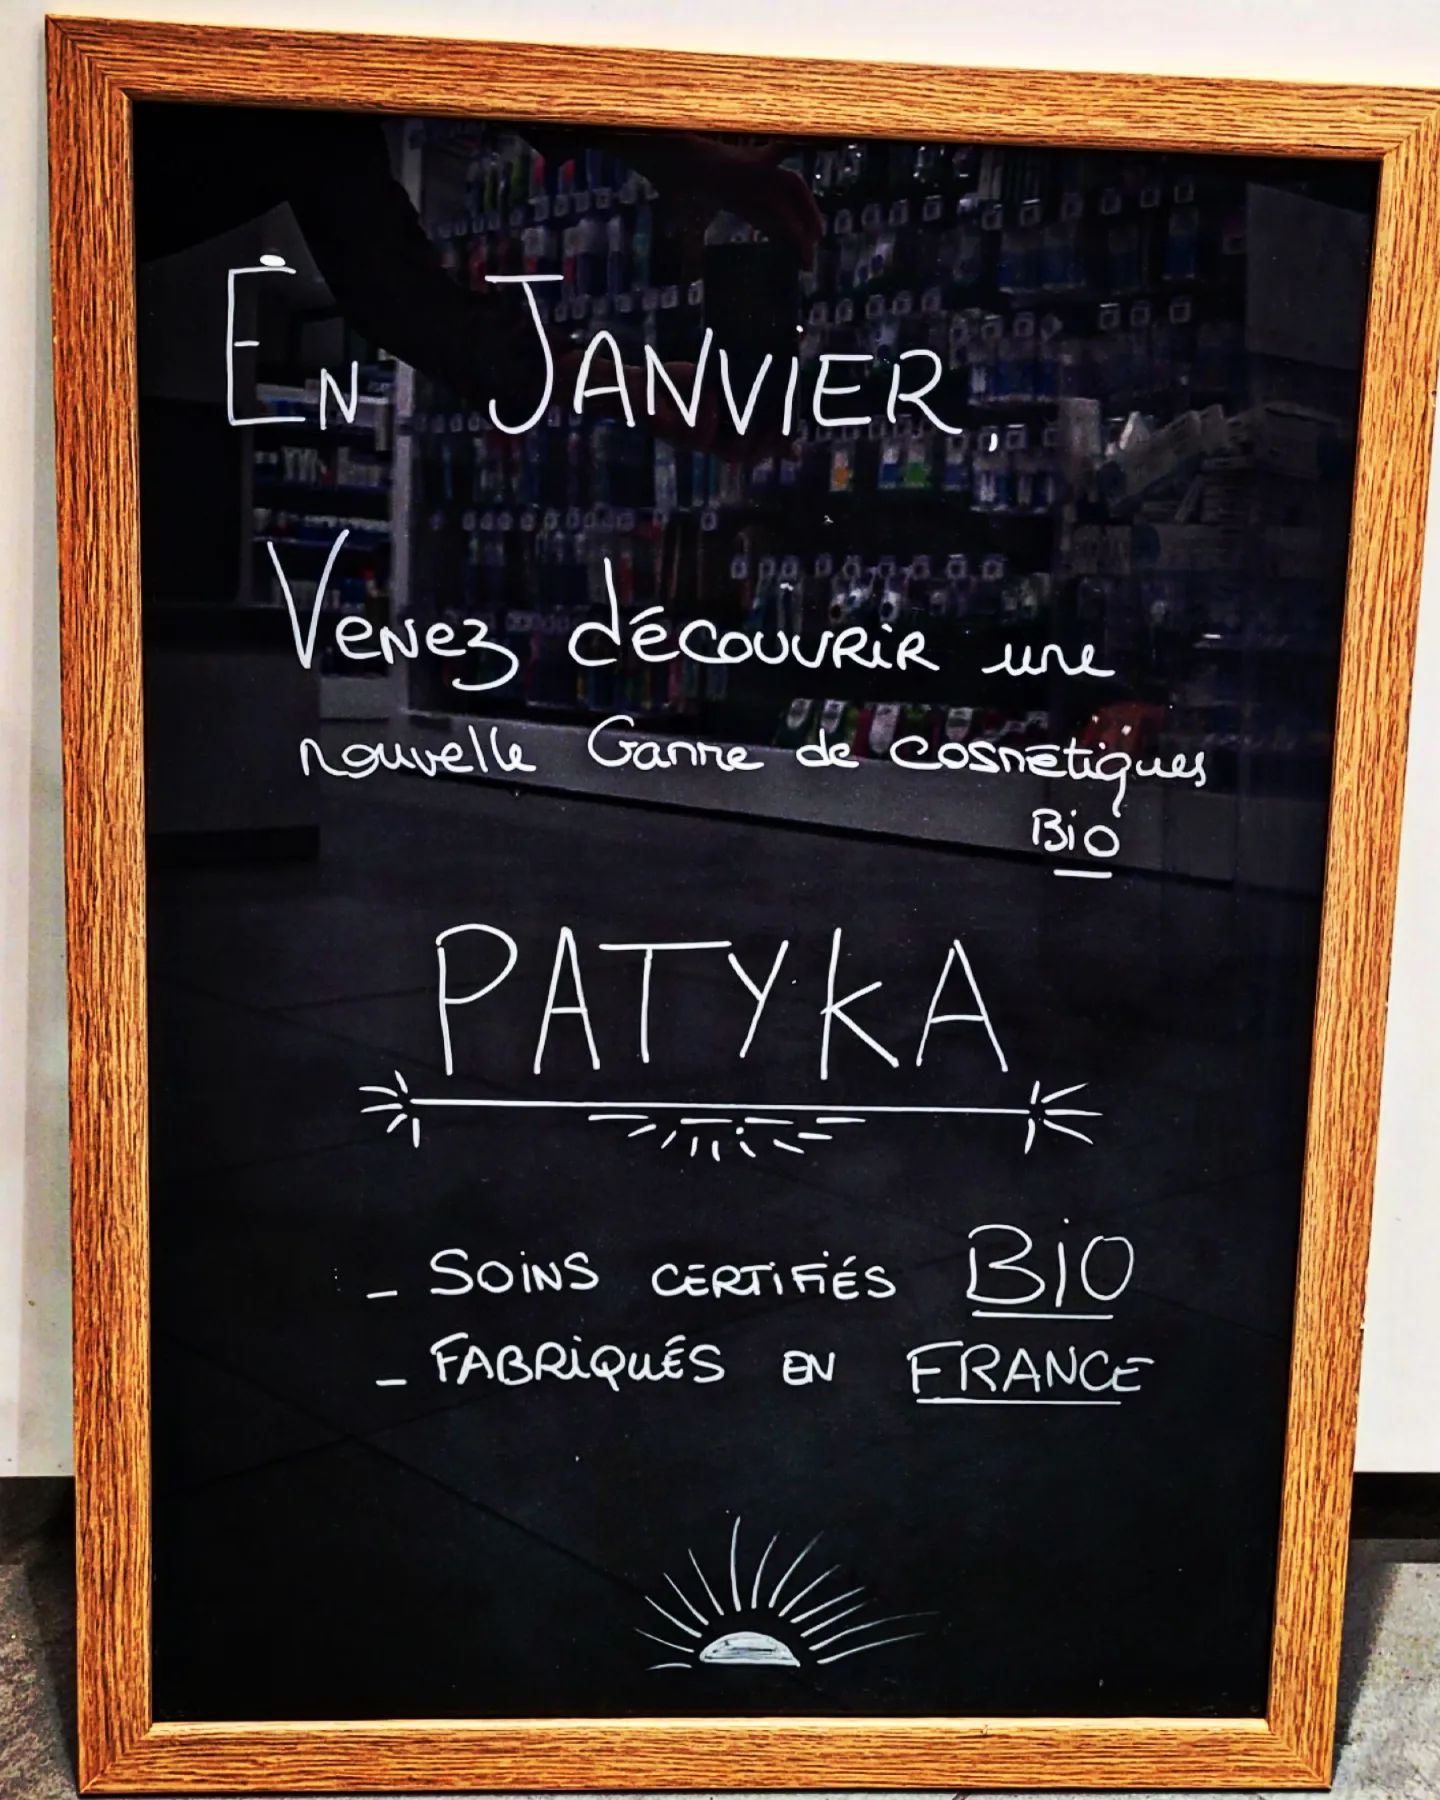 En Janvier,
Venez découvrir une
nouvelle Gamme de cosmétiques
Bio
PATYKA
- SOINS CERTIFIÉS BIO
- FABRIQUÉS EN FRANCE